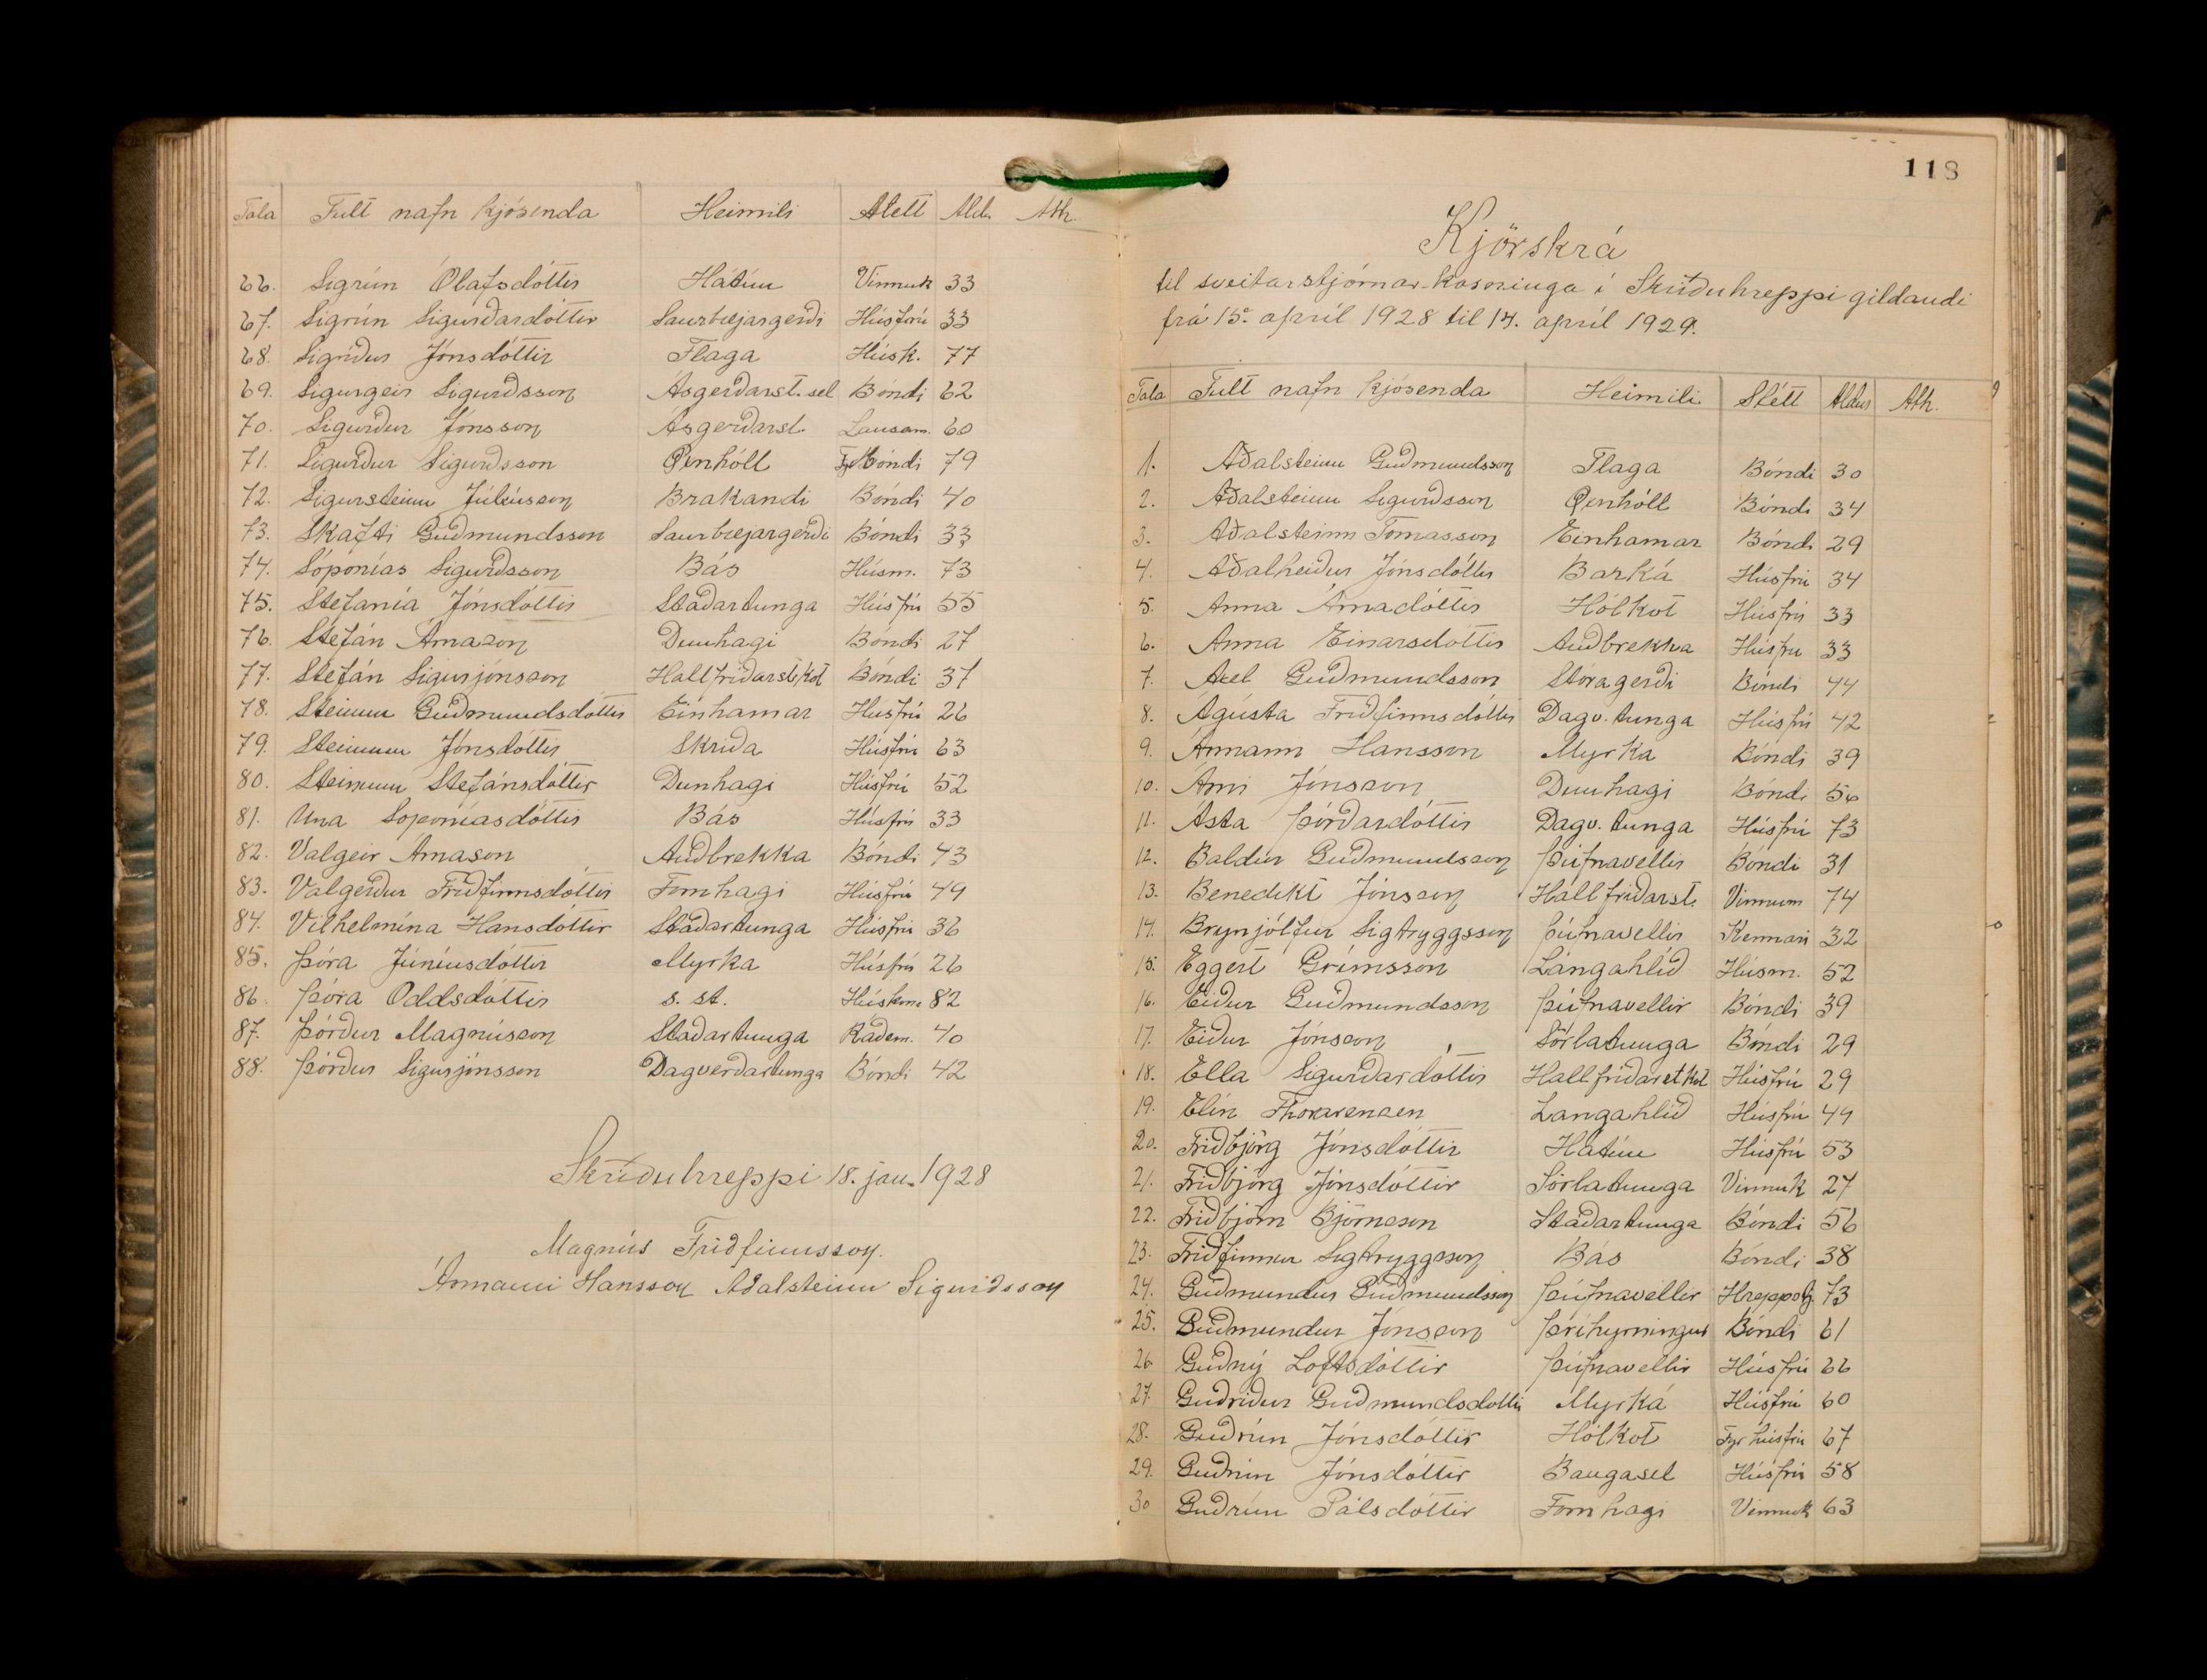 Tala Fullt nafn kjósenda Heimili Stétt Ald. Ath.
66. Sigrún Ólafsdóttir Hátún Vinnuk 33
67. Sigrún Sigurðardóttir Saurbæjargerði Húsfrú 33
68. Sigríður Jónsdóttir Flaga Húsk. 77
69. Sigurgeir Sigurðsson Ásgerðarst.sel Bóndi 62
70. Sigurður Jónsson Ásgerðarst. Lausam. 60
71. Sigurður Sigurðsson Öxnhóll Bóndi 79
72. Sigursteinn Júlíusson Brakandi Bóndi 40
73. Skafti Guðmundsson Saurbæjargerði Bóndi 33
74. Sóponías Sigurðsson Bás Húsm. 73
75. Stefanía Jónsdóttir Staðartunga Húsfrú 55
76. Stefán Árnason Dunhagi Bóndi 27
77. Stefán Sigurjónsson Hallfríðarst.kot Bóndi 37
78. Steinunn Guðmundsdóttir Einhamar Húsfrú 26
79. Steinunn Jónsdóttir Skriða Húsfrú 63
80. Steinunn Stefánsdóttir Dunhagi Húsfrú 52
81. Una Soponíasdóttir Bás Húsfrú 33
82. Valgeir Árnason Auðbrekka Bóndi 43
83. Valgerður Friðfinnsdóttir Fornhagi Húsfrú 49
84. Vilhelmína Hansdóttir Staðartunga Húsfrú 36
85. Þóra Júníusdóttir Myrká Húsfrú 26
86. Þóra Oddsdóttir s. st. Húskona 82
87. Þórður Magnússon Staðartunga Ráðsm. 40
88. Þórður Sigurjónsson Dagverðartunga Bóndi 42
Skriðuhreppi 18. jan. 1928
Magnús Friðfinnsson.
Ármann Hansson Aðalsteinn Sigurðsson
118
Kjörskrá
til sveitarstjórnar-kosninga í Skriðuhreppi gildandi
frá 15. apríl 1928 til 14. apríl 1929.
Tala Fullt nafn kjósenda Heimili Stétt Aldur Ath.
1. Aðalsteinn Guðmundsson Flaga Bóndi 30
2. Aðalsteinn Sigurðsson Öxnhóll Bóndi 34
3. Aðalsteinn Tómasson Einhamar Bóndi 29
4. Aðalheiður Jónsdóttir Barká Húsfrú 34
5. Anna Árnadóttir Hólkot Húsfrú 33
6. Anna Einarsdóttir Auðbrekka Húsfrú 33
7. Axel Guðmundsson Stóragerði Bóndi 44
8. Ágústa Friðfinnsdóttir Dagv.tunga Húsfrú 42
9. Ármann Hansson Myrka Bóndi 39
10. Árni Jónsson Dunhagi Bóndi 56
11. Ásta Þórðardóttir Dagv.tunga Húsfrú 73
12. Baldur Guðmundsson Þúfnavellir Bóndi 31
13. Benedikt Jónsson Hallfríðarst. Vinnum 74
14. Brynjólfur Sigtryggsson Þúfnavellir Kennari 32
15. Eggert Grímsson Langahlíð Húsm. 52
16. Eiður Guðmundsson Þúfnavellir Bóndi 39
17. Eiður Jónsson Sörlatunga Bóndi 29
18. Ella Sigurðardóttir Hallfríðarst.kot Húsfrú 29
19. Elín Thorarensen Langahlíð Húsfrú 49
20. Friðbjörg Jónsdóttir Hátún Húsfrú 53
21. Friðbjörg Jónsdóttir Sörlatunga Vinnuk 27
22. Friðbjörn Björnsson Staðartunga Bóndi 56
23. Friðfinnur Sigtryggsson Bás Bóndi 38
24. Guðmundur Guðmundsson Þúfnavellir Hreppstj. 73
25. Guðmundur Jónsson Þríhyrningur Bóndi 61
26 Guðný Loftsdóttir Þúfnavellir Húsfrú 66
27 Guðríður Guðmundsdóttir Myrká Húsfrú 60
28. Guðrún Jónsdóttir Hólkot Fyr húsfrú 67
29. Guðrún Jónsdóttir Baugasel Húsfrú 58
30 Guðrún Pálsdóttir Fornhagi Vinnuk 63